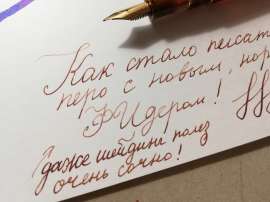 Как стало писать
перо с новым, нор
ФИдером!
даже шейдинг полез
очень сочно!